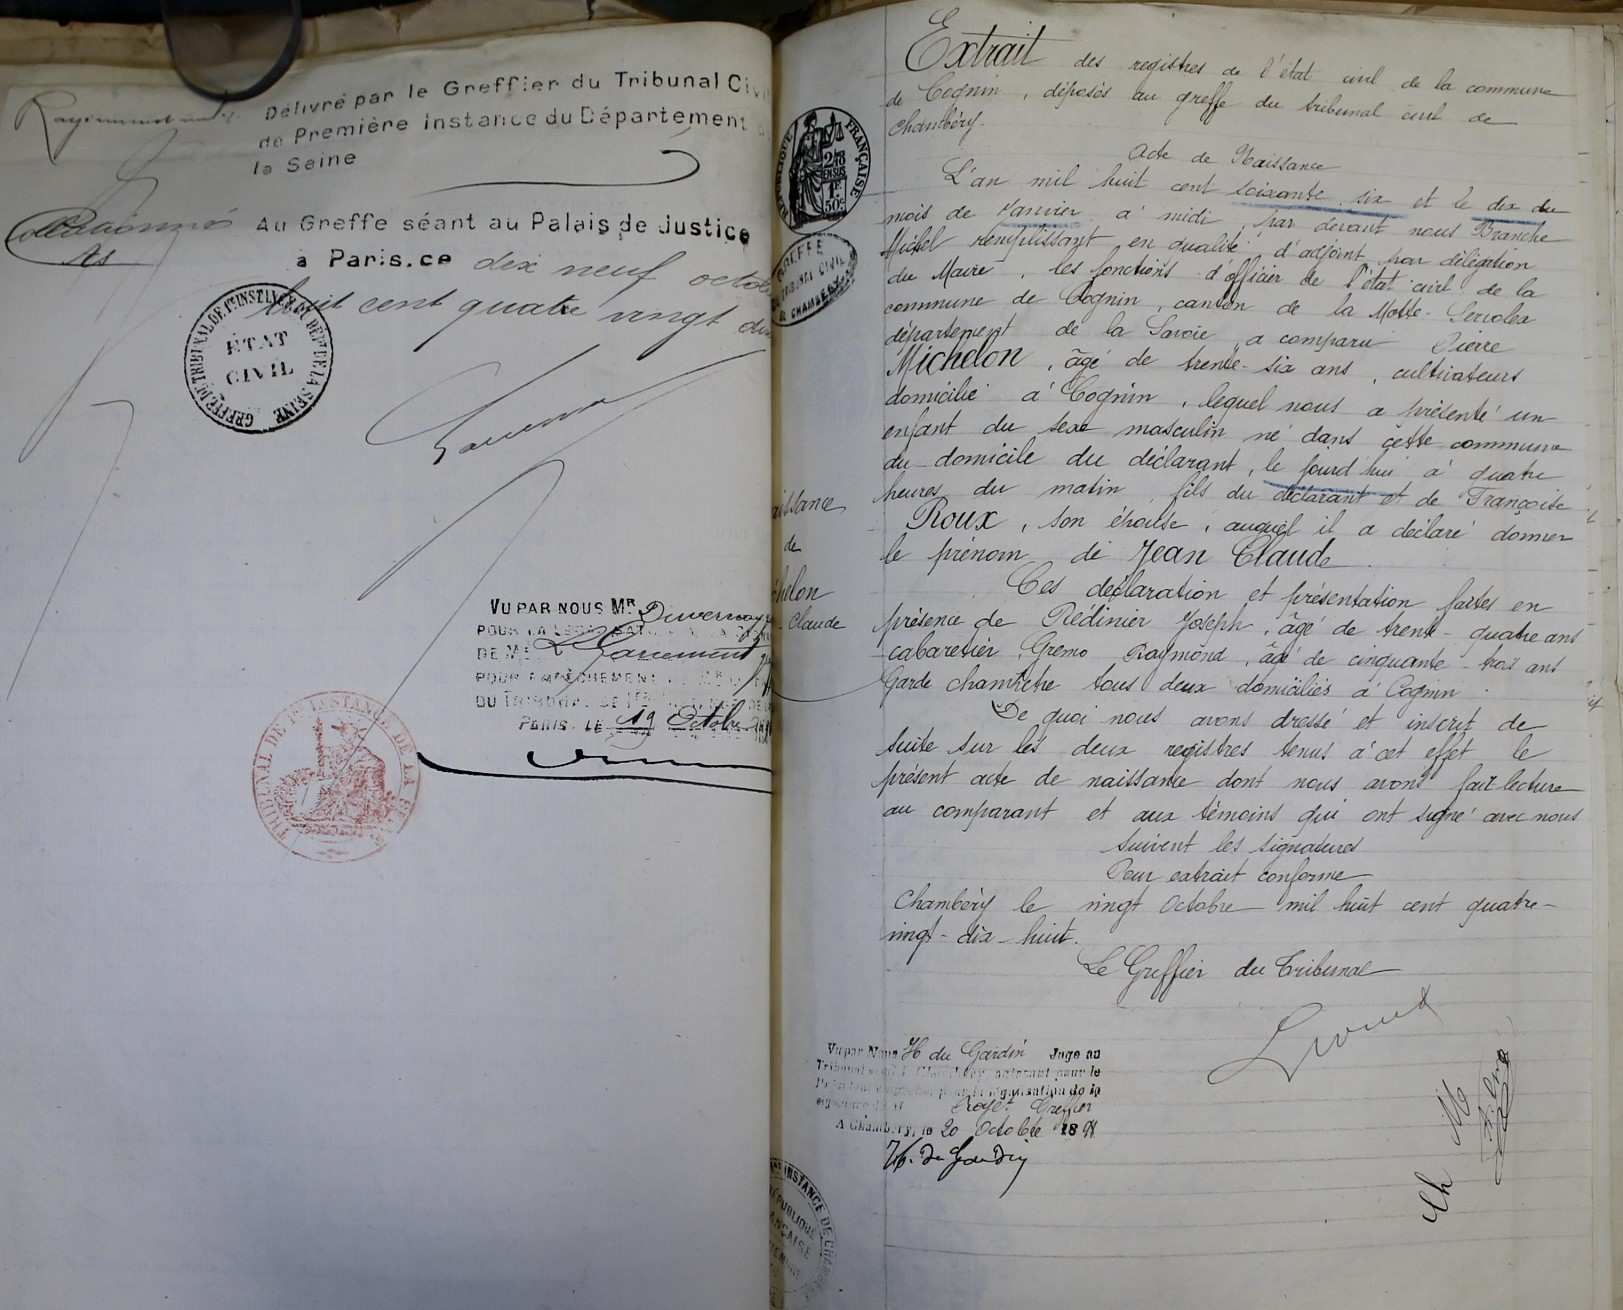 Délivré par le Greffier du Tribunal Civil
de Première instance du Département
la Seine
Collationné
Au Greffe séant au Palais de Justice
à Paris, ce dix neuf octob
huit cent quatre vingt dix
GREFFE DU TRIBUNAL DE 1re INSTANCE DU DÉPt DE LA SEINE
ÉTAT
CIVIL
VU PAR NOUS Mr Duvernoy
POUR LA LEGALISATION
DE Mr
POUR EMPÊCHEMENT
DU TRIBUNAL DE 1re
PARIS, LE 19 Octobre
TRIBUNAL DE 1re INSTANCE DE LA SEINE
RÉPUBLIQUE FRANÇAISE
2/10
EN SUS
1F
50c
GREFFE
TRIBUNAL CIVIL
DE CHAMBÉRY
Extrait des registres de l'état civil de la commune
de Cognin, déposés au greffe du tribunal civil de
Chambéry.
Acte de Naissance
L'an mil huit cent soixante six et le dix du
mois de Janvier à midi, par devant nous Branche
Michel remplissant en qualité d'adjoint, par délégation
du Maire, les fonctions d'officier de l'état civil de la
commune de Cognin, canton de la Motte-Servolex
département de la Savoie, a comparu Pierre
Michelon, âgé de trente-six ans, cultivateurs
domicilié à Cognin, lequel nous a présenté un
enfant du sexe masculin né dans cette commune
du domicile du déclarant, le jourd'hui à quatre
heures du matin, fils du déclarant et de Françoise
Roux, son épouse, auquel il a déclaré donner
le prénom de Jean Claude.
Ces déclaration et présentation faites en
présence de Rédinier Joseph, âgé de trente-quatre ans
cabaretier, Gremo Raymond, âgé de cinquante-trois ans
Garde champêtre tous deux domiciliés à Cognin.
De quoi nous avons dressé et inscrit de
suite sur les deux registres tenus à cet effet le
présent acte de naissance dont nous avons fait lecture
au comparant et aux témoins qui ont signé avec nous
Suivent les signatures
Pour extrait conforme
Chambéry le vingt Octobre mil huit cent quatre-
vingt-dix-huit.
Le Greffier du Tribunal
aissance
de
chelon
Claude
Vu par Nous H du Gardin Juge au
Tribunal
Greffier
A Chambéry, le 20 Octobre 1898
H. du Gardin
INSTANCE DE
RÉPUBLIQUE
FRANÇAISE